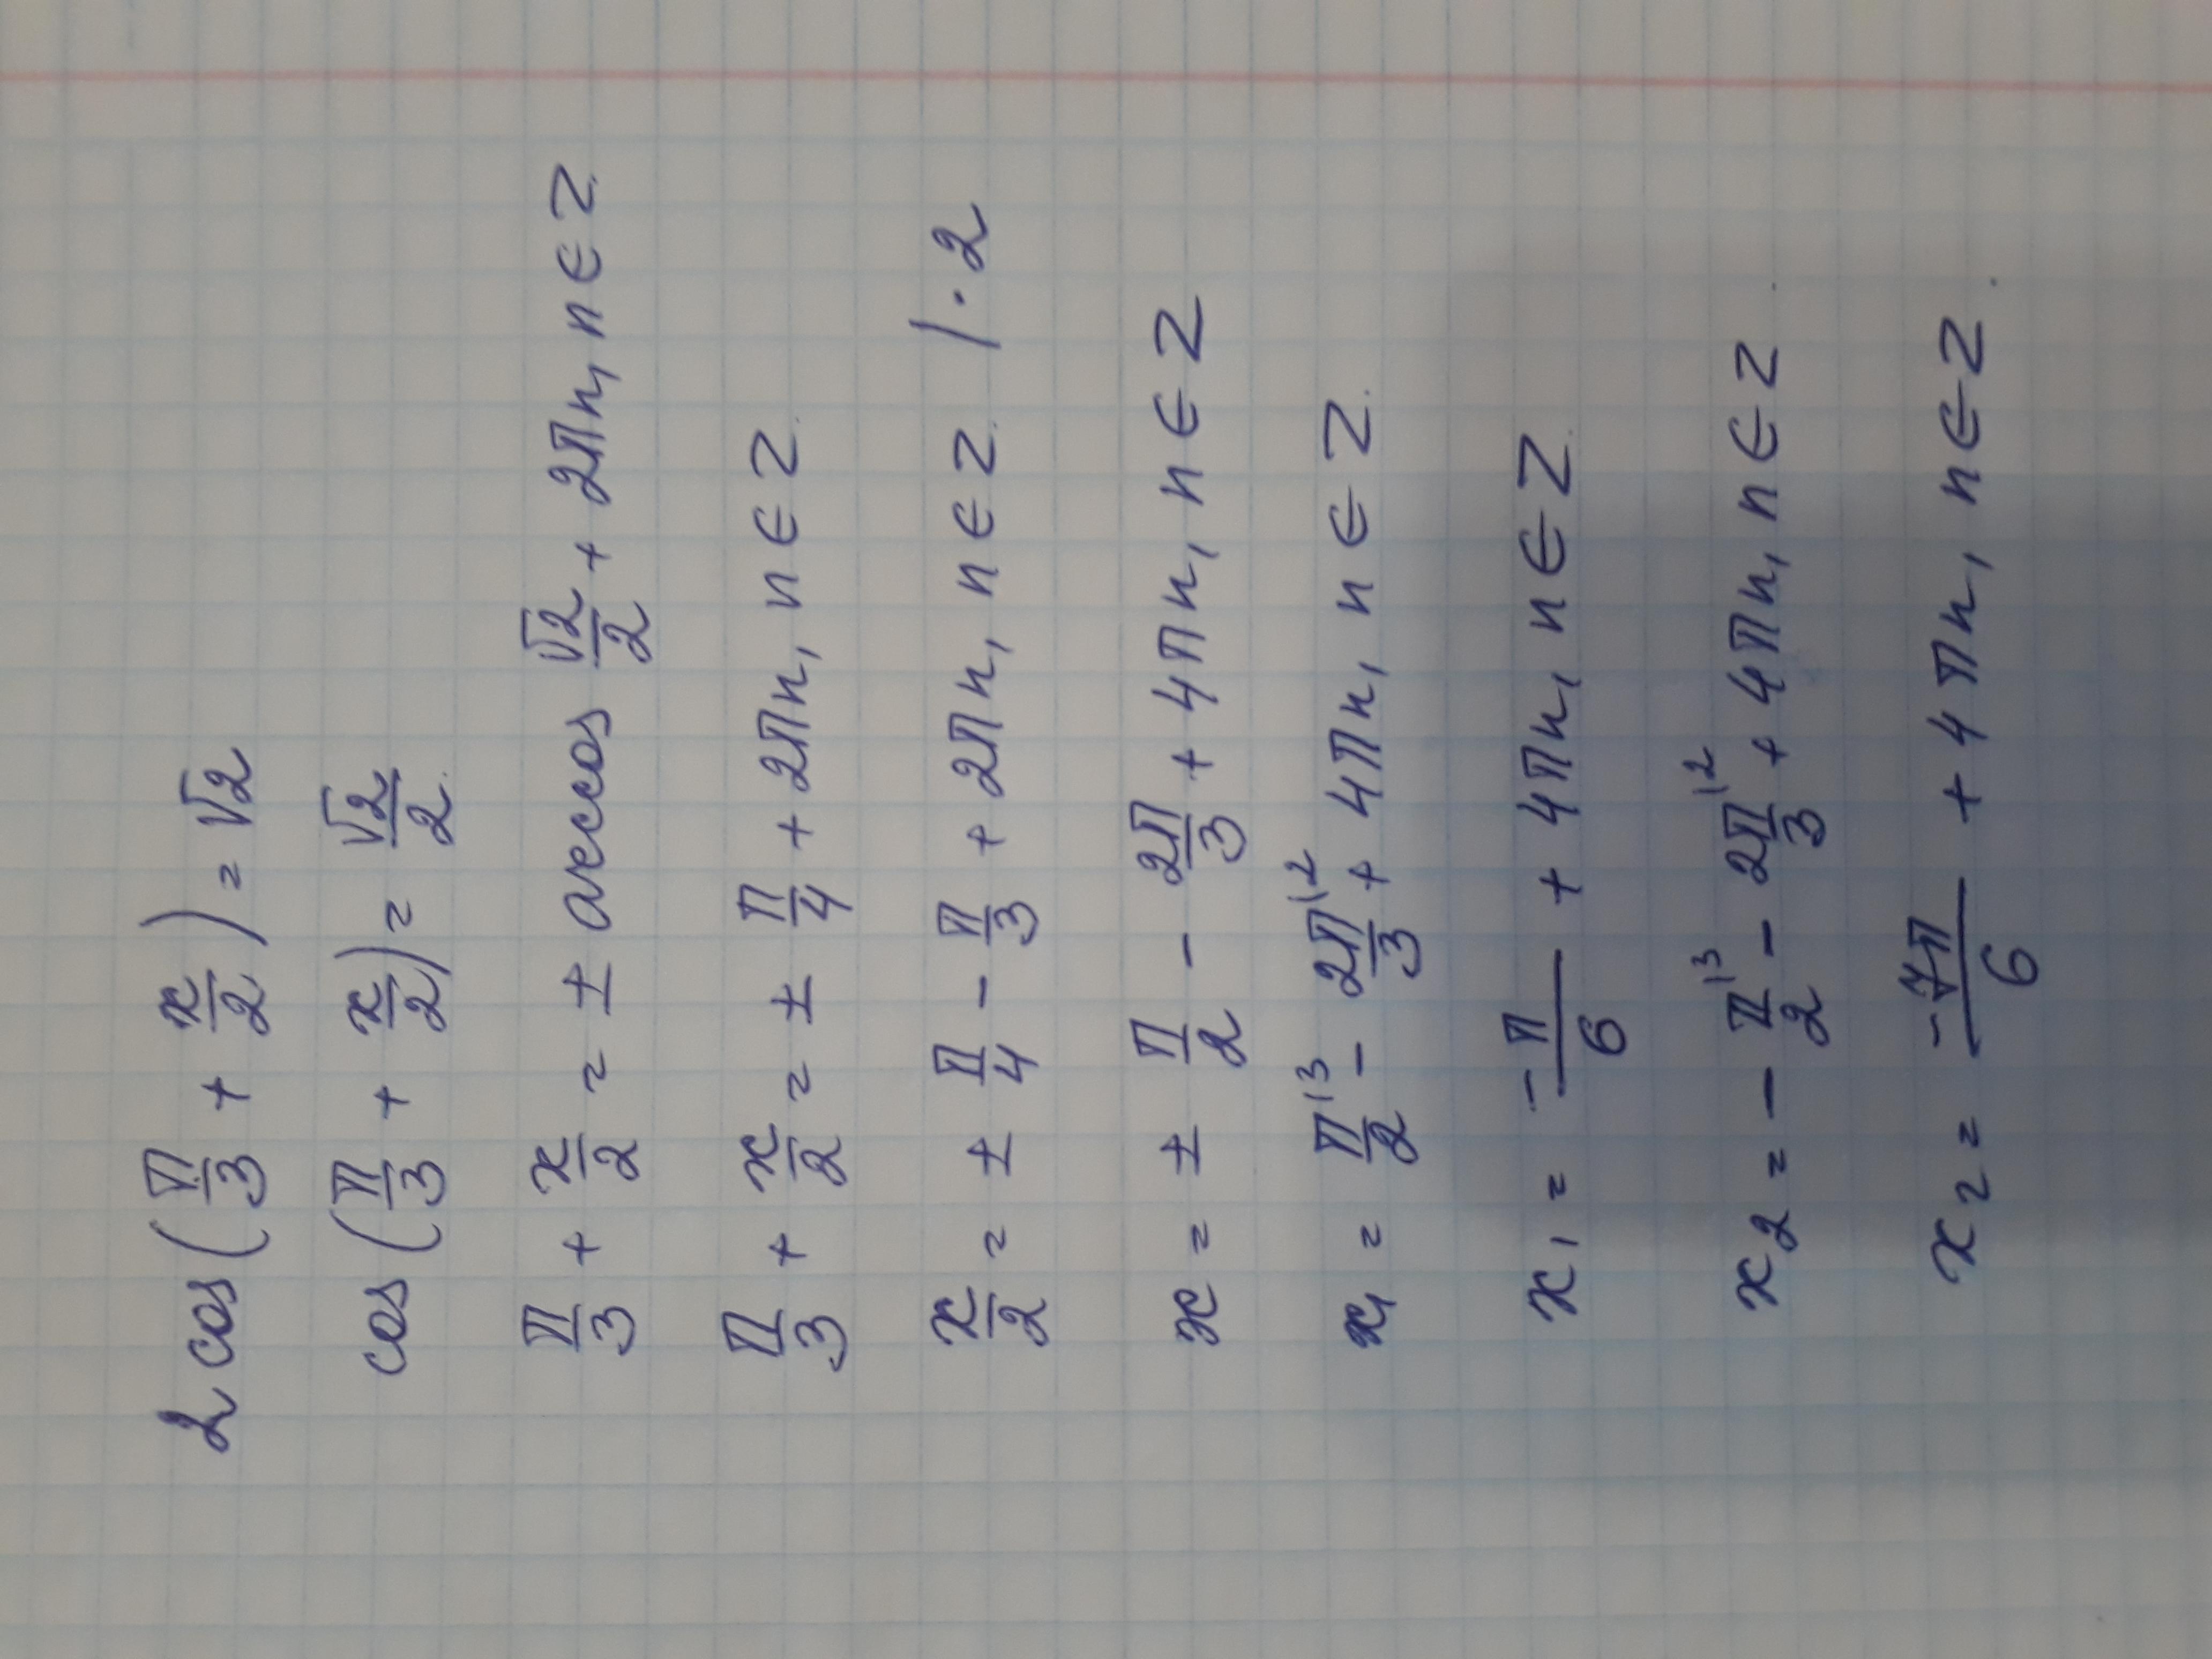 2 cos (π/3 + x/2) = √2
cos (π/3 + x/2) = √2/2
π/3 + x/2 = ± arccos √2/2 + 2πn, n ∈ Z.
π/3 + x/2 = ± π/4 + 2πn, n ∈ Z.
x/2 = ± π/4 - π/3 + 2πn, n ∈ Z. / · 2
x = ± π/2 - 2π/3 + 4πn, n ∈ Z
x₁ = π/2 |3 - 2π/3 |2 + 4πn, n ∈ Z.
x₁ = -π/6 + 4πn, n ∈ Z.
x₂ = - π/2 |3 - 2π/3 |2 + 4πn, n ∈ Z
x₂ = -7π/6 + 4πn, n ∈ Z